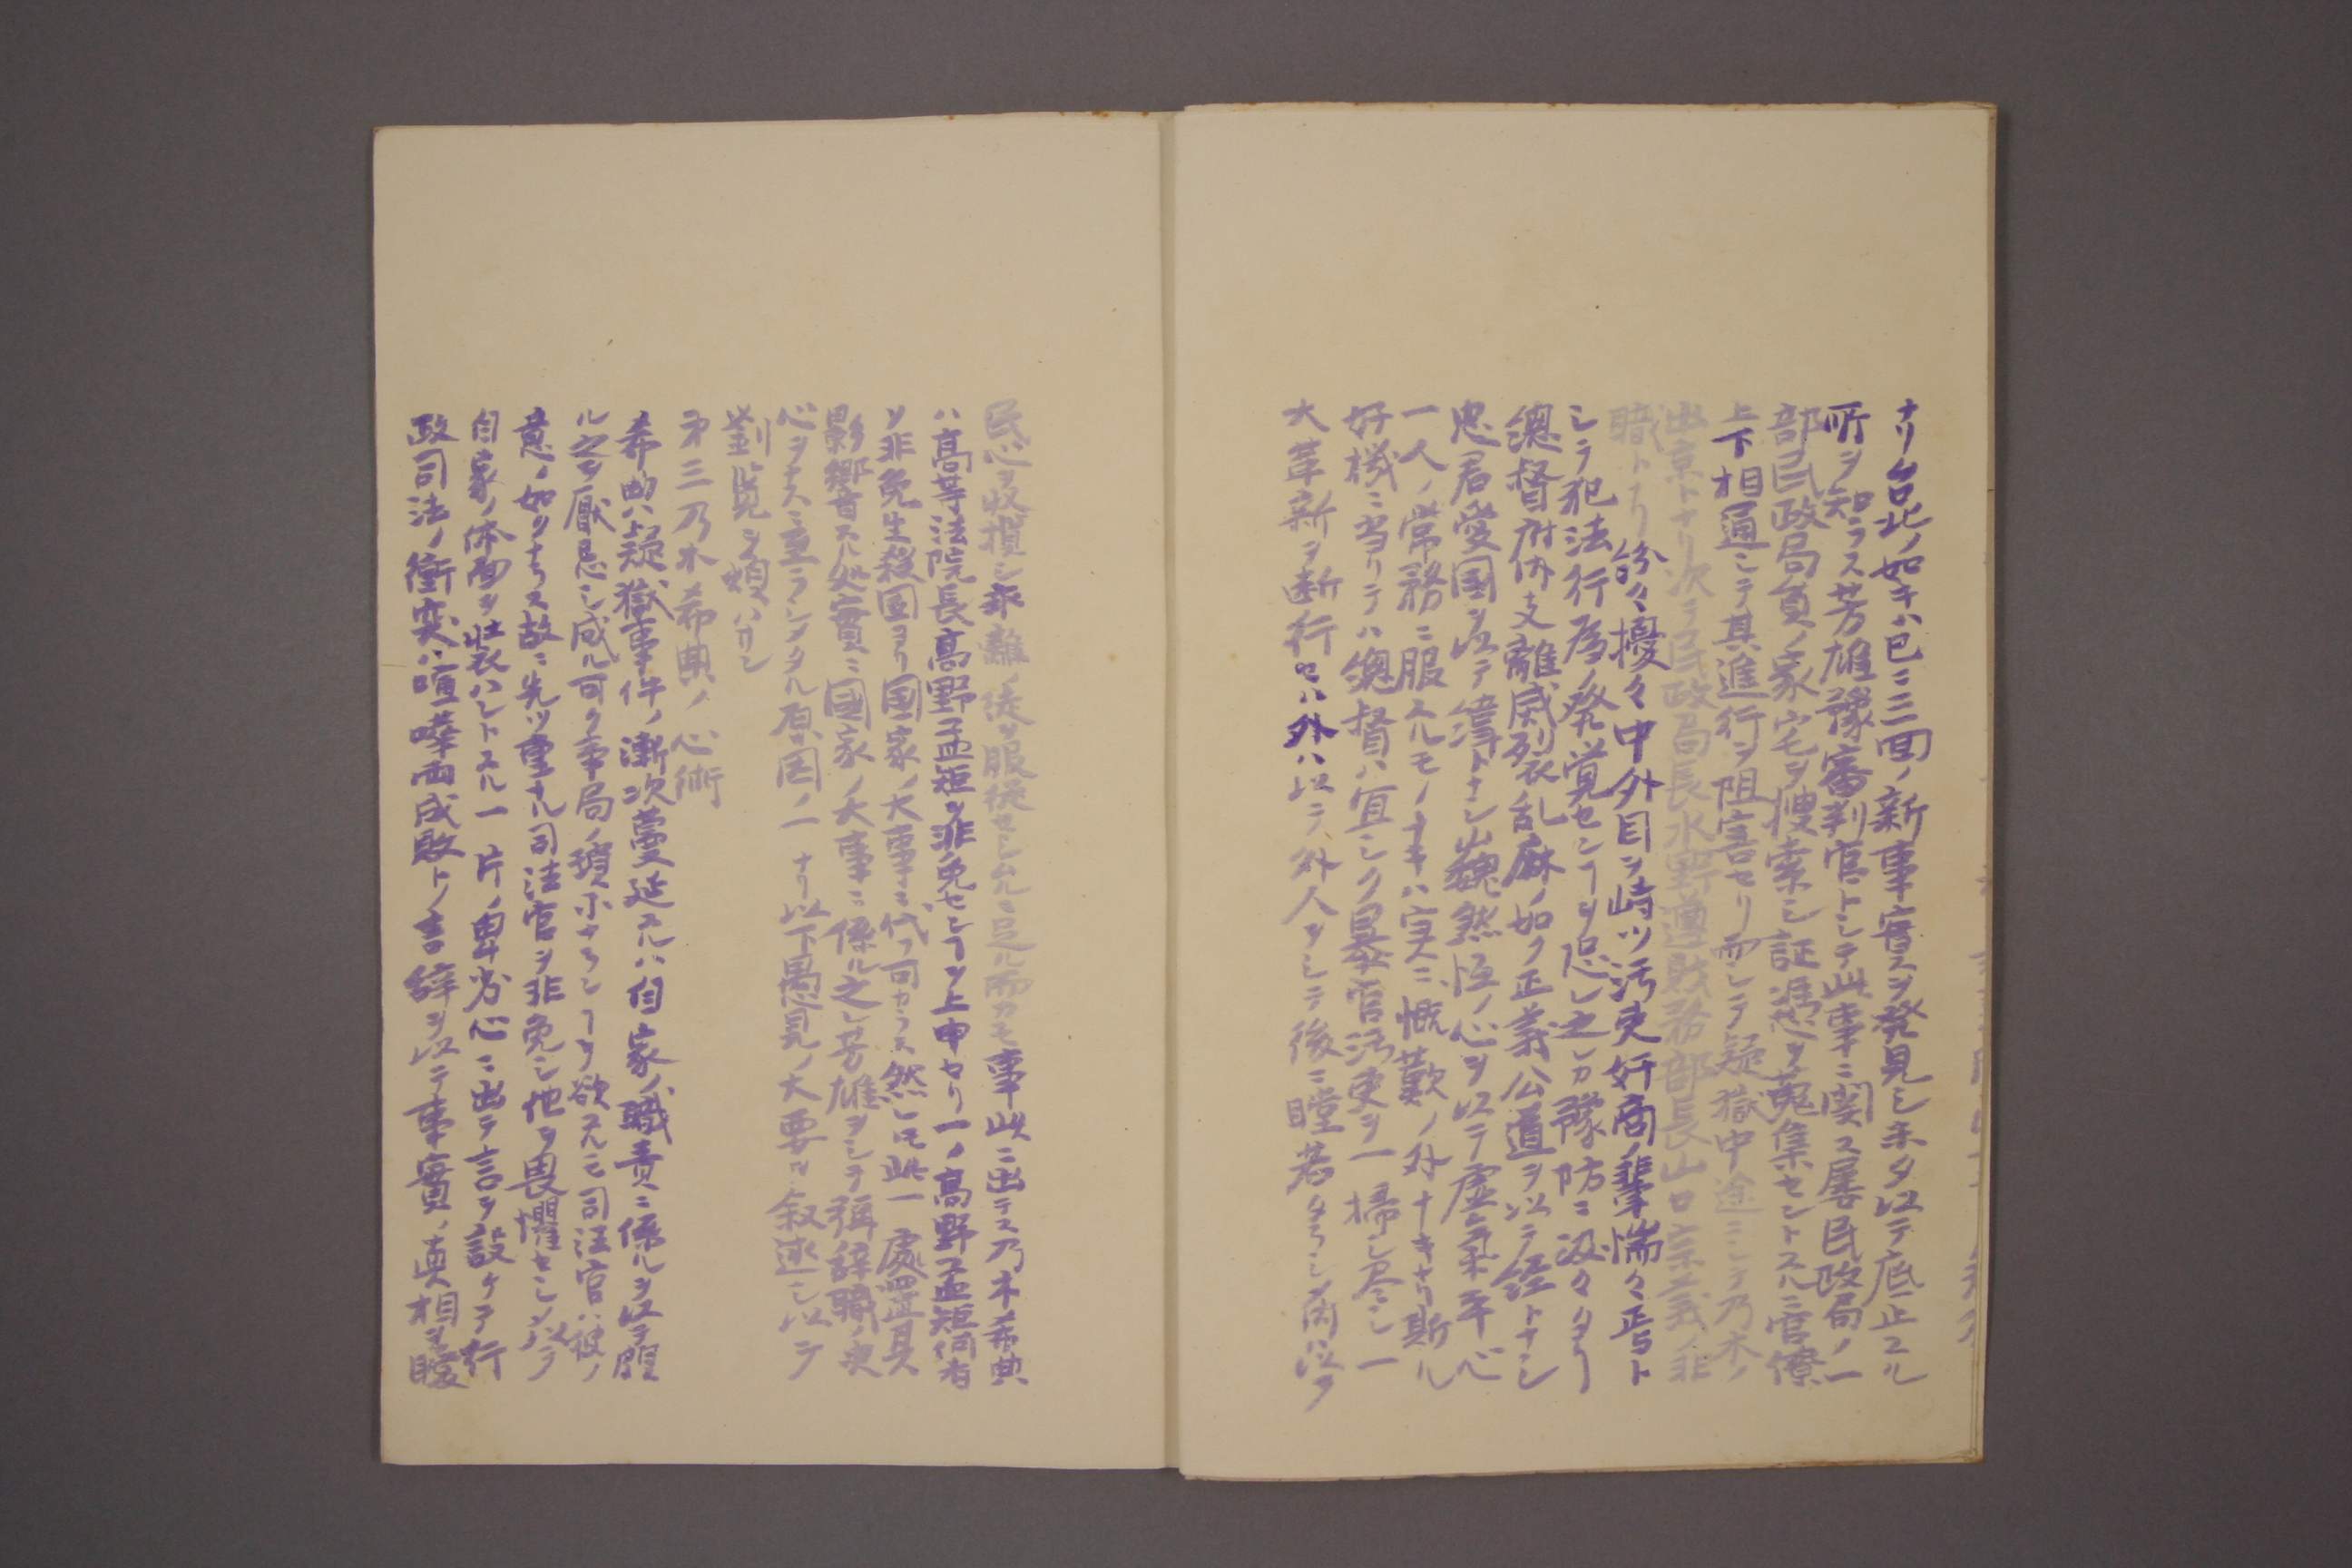 ナリ台北ノ如キハ已ニ三回ノ新事實ヲ発見シ未タ以テ底止スル
所ヲ知ラス芳雄豫審判官トシテ此事ニ関ス屡民政局ノ一
部民政局員ノ家宅ヲ捜索シ証憑ヲ蒐集セントスルニ官僚
上下相通シテ其進行ヲ阻害セリ而シテ疑獄中途ニシテ乃木ノ
出京トナリ次テ民政局長水野遵財務部長山口宗義ノ非
職トナリ紛々擾々中外目ヲ峙ツ汚吏奸商ノ輩惴々焉ト
シテ犯法行為ノ発覚センヿヲ恐レ之レカ豫防ニ汲々タリ
總督府内支離滅裂乱麻ノ如ク正義公道ヲ以テ経トナシ
忠君愛国ヲ以テ緯トナシ巍然恒ノ心ヲ以テ虚氣平心
一人ノ常務ニ服スルモノナキハ実ニ慨歎ノ外ナキナリ斯ル
好機ニ当リテハ總督ハ宜シク暴官汚吏ヲ一掃シ尽シ一
大革新ヲ断行セハ外ハ以テ外人ヲシテ後ニ瞠若タラシメ内ハ以テ
民心ヲ収攬シ乖離ノ徒ヲ服従セシムルニ足ル而カモ事此ニ出テス乃木希典
ハ高等法院長高野孟矩ヲ非免センヿヲ上申セリ一ノ高野孟矩何者
ソ非免生殺固ヨリ国家ノ大事ニ代フ可カラス然レモ此一處置其
影響スル処實ニ國家ノ大事ニ係ル之レ芳雄ヲシテ猶辞職ノ決
心ヲ夫ニ至ラシメタル原因ノ一ナリ以下愚見ノ大要ヲ叙述シ以テ
劉覧ヲ煩ハサン
第三乃木希典ノ心術
希典ハ疑獄事件ノ漸次蔓延スルハ自家ノ職責ニ係ルヲ以テ頗
ル之ヲ厭忌シ成ル可ク事局ノ瑣小ナランヿヲ欲スルモ司法官ハ彼ノ
意ノ如クナラス故ニ先ツ重ナル司法官ヲ非免シ他ヲ畏懼セシメ以テ
自家ノ体面ヲ粧ハントスル一片ノ卑劣心ニ出テ言ヲ設ケテ行
政司法ノ衝突ハ喧嘩両成敗トノ言辞ヲ以テ事實ノ真相ヲ曖